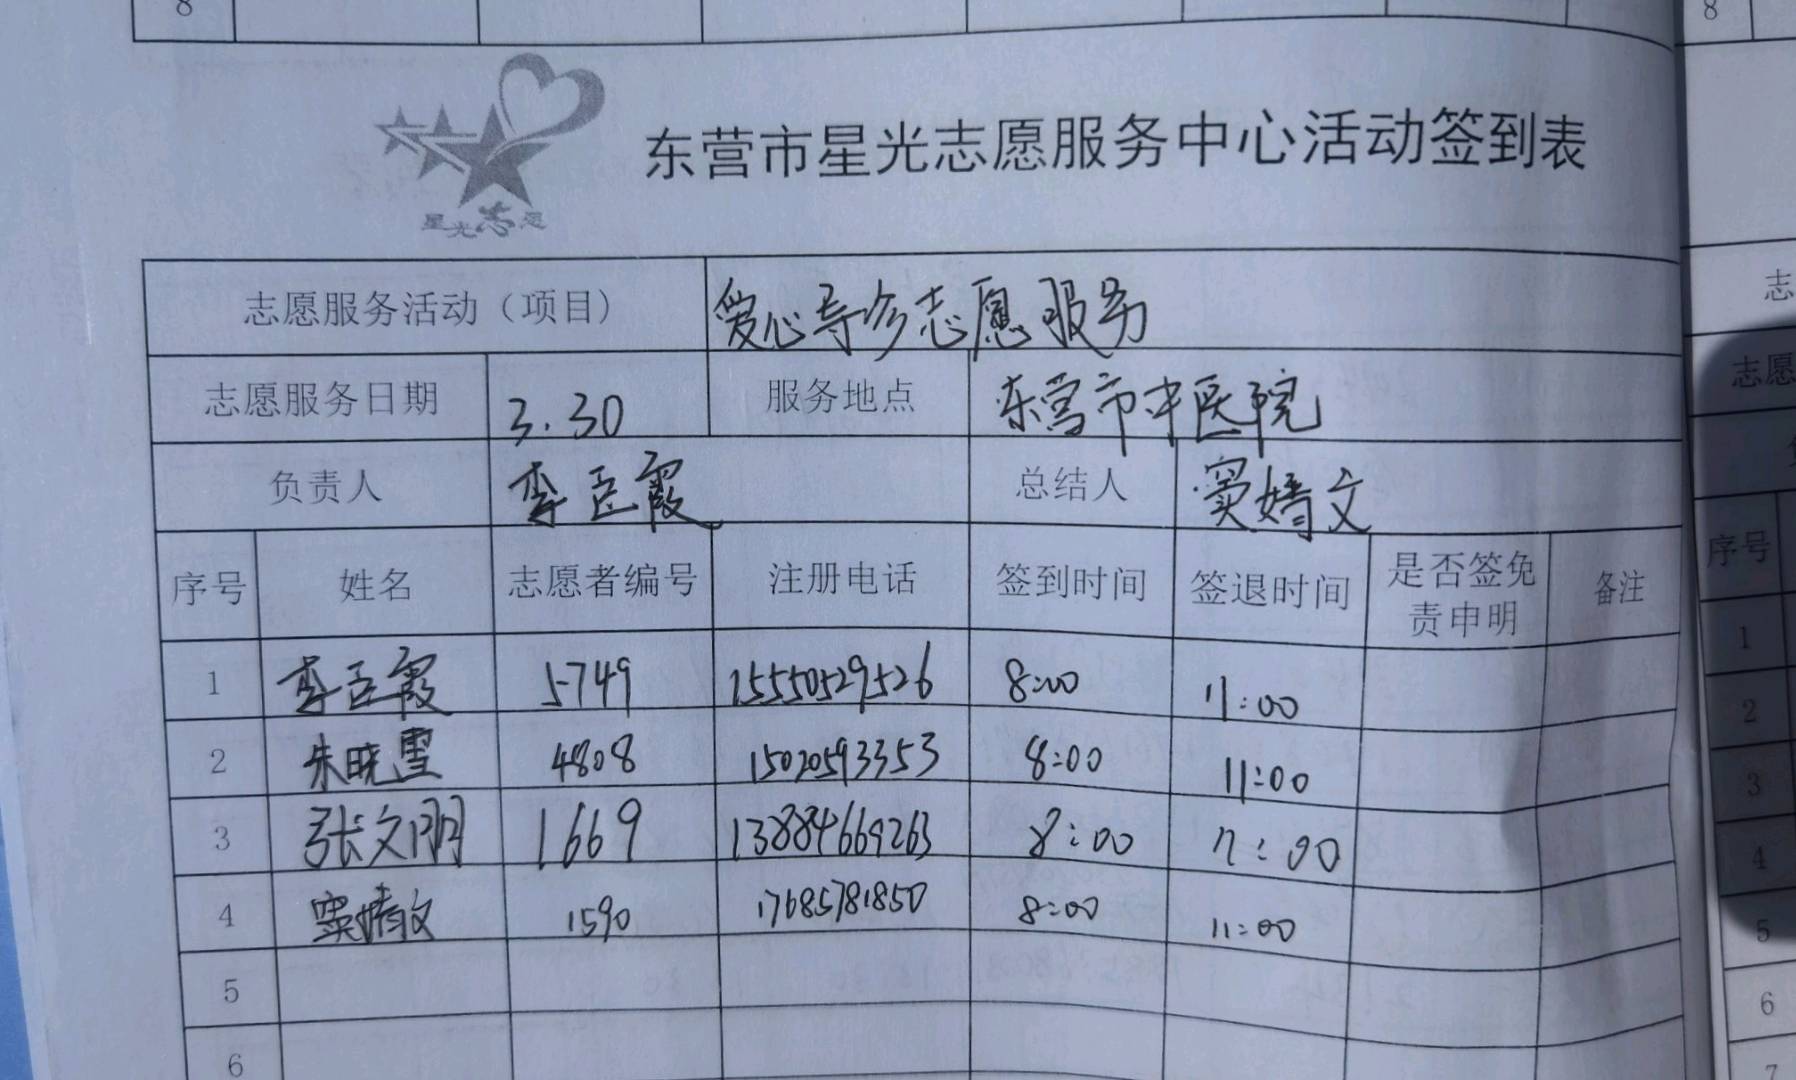 8
8
星光志愿
东营市星光志愿服务中心活动签到表
志愿服务活动（项目） 爱心导诊志愿服务
志愿服务日期 3.30 服务地点 东营市中医院
负责人 李臣霞 总结人 窦婧文
序号 姓名 志愿者编号 注册电话 签到时间 签退时间 是否签免责申明 备注
1 李臣霞 5749 15550529526 8:00 11:00
2 朱晓雪 4808 15020593353 8:00 11:00
3 张文明 1669 13884669263 8:00 11:00
4 窦婧文 1590 17685781850 8:00 11:00
5
6
志
志愿
序号
1
2
3
4
5
6
7